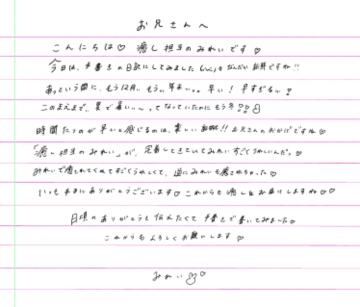 お兄さんへ
こんにちは♡ 癒し担当のみれいです♡
今日は、手書きの日記にしてみました
あっという間に、もう12月。もう、年末… 早い! 早すぎるぅ!
このまえまで、夏で暑い〜 ってなっていたのにもう冬!?
時間たつのが早いと感じるのは、楽しい証拠!! お兄さんのおかげですね♡
「癒し担当のみれい」が、定着してきていてみれいすごくうれしいんだっ♡
みれいで癒されてくれてすごくうれしくて、逆にみれいも癒されちゃった♡
いつも本当にありがとうございます♡ これからも癒しをお届けしますね♡♡
日頃のありがとうも伝えたくて手書きで書いてみました♡
これからもよろしくお願いします♡
みれい♡